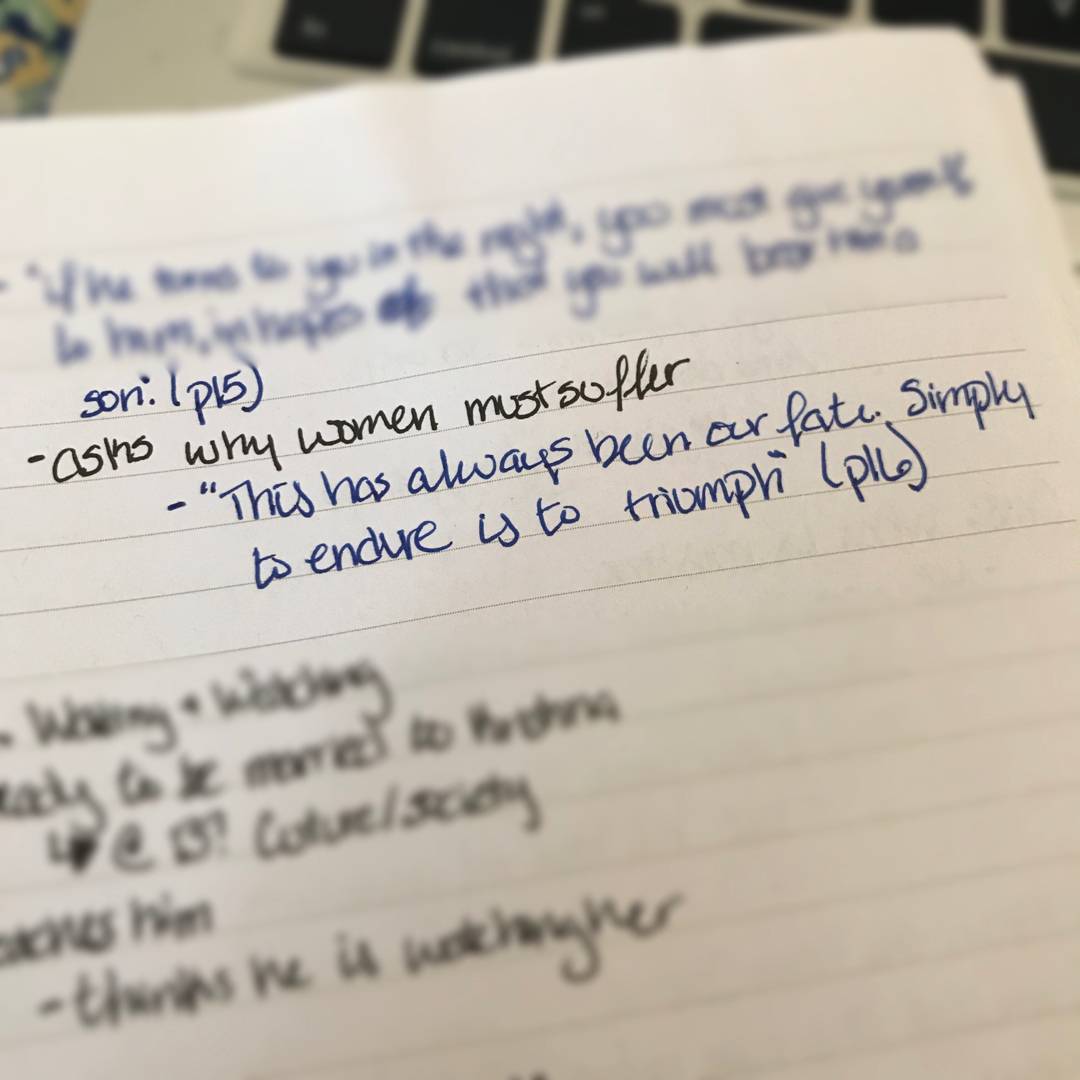 - "if he turns to you in the night, you must give yourself
to him, in hopes that you will bear him a
son." (p15)
- asks why women must suffer
- "This has always been our fate. Simply
to endure is to triumph" (p16)
- Waiting + Watching
ready to be married to Krishna
@ 13? Culture/society
him
- thinks he is watching her